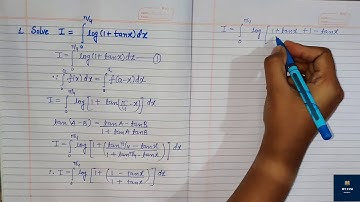 1. Solve I = ∫₀^(π/4) log(1+tanx)dx
I = ∫₀^(π/4) log(1+tanx)dx ①
∵ ∫₀^a f(x)dx = ∫₀^a f(a-x)dx
I = ∫₀^(π/4) log[1 + tan(π/4 - x)] dx
tan(A-B) = (tanA - tanB)/(1 + tanA tanB)
I = ∫₀^(π/4) log[1 + (tanπ/4 - tanx)/(1 + tanπ/4 tanx)] dx
∴ I = ∫₀^(π/4) log[1 + (1 - tanx)/(1 + tanx)] dx
I = ∫₀^(π/4) log[1+tanx + 1-tanx